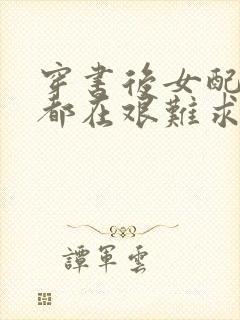 穿書後女配
都在艱難求
譚軍雲